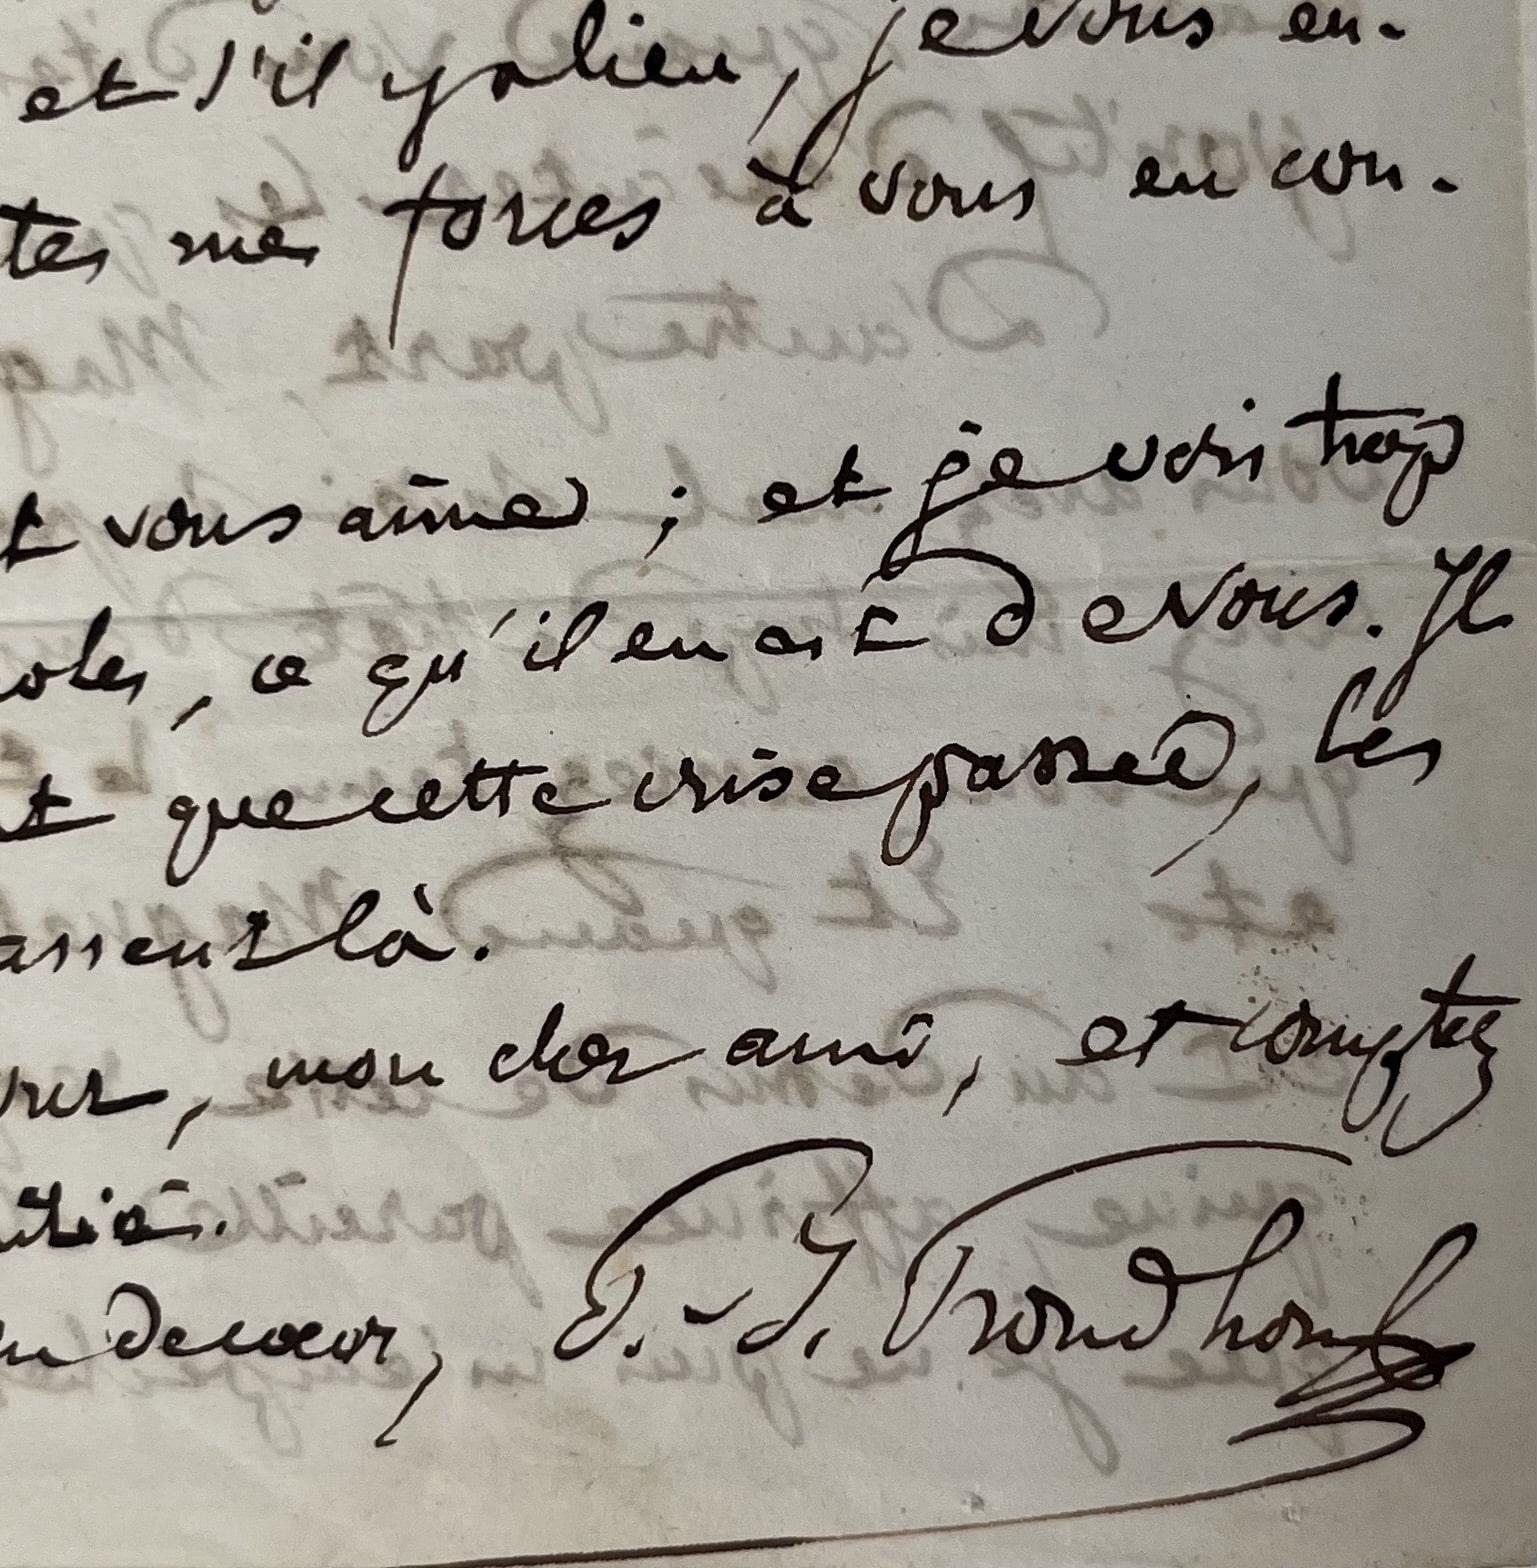 et s'il y a lieu, je vous en-
tes mes forces à vous en con-
t vous aime ; et je vois trop
oles, ce qu'il en est de vous. Il
t que cette crise passée, les
assent là.
mon cher ami, et comptez
itié.
de cœur, P.-J. Proudhon